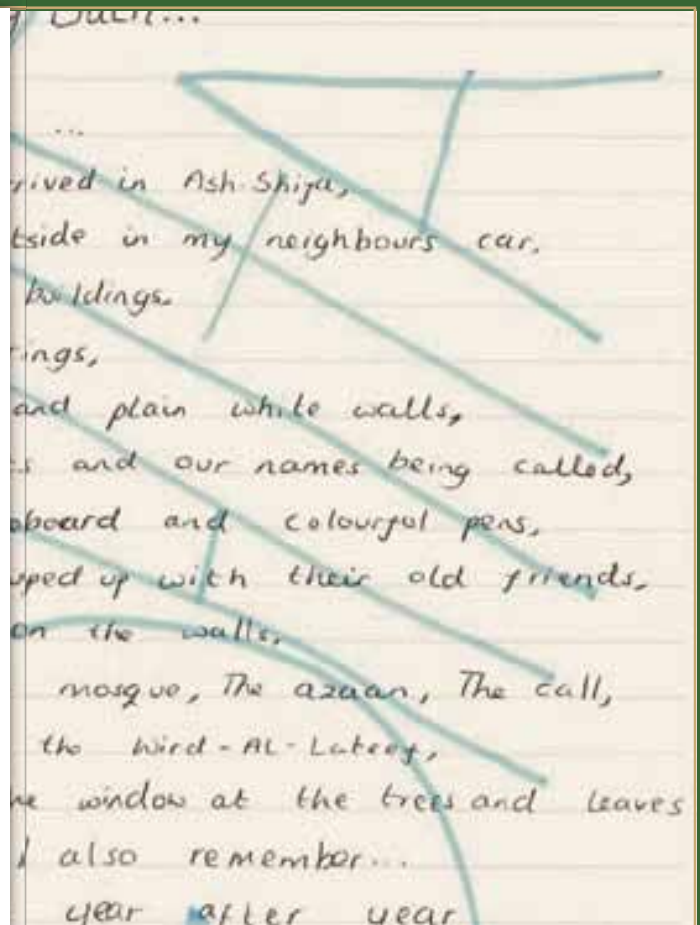 Back...
...
rived in Ash-Shifa,
tside in my neighbours car,
buildings.
ings,
and plain white walls,
s and our names being called,
board and colourful pens,
uped up with their old friends,
on the walls,
mosque, The azaan, The call,
the Wird-AL-Lateef,
he window at the trees and leaves
I also remember...
year after year